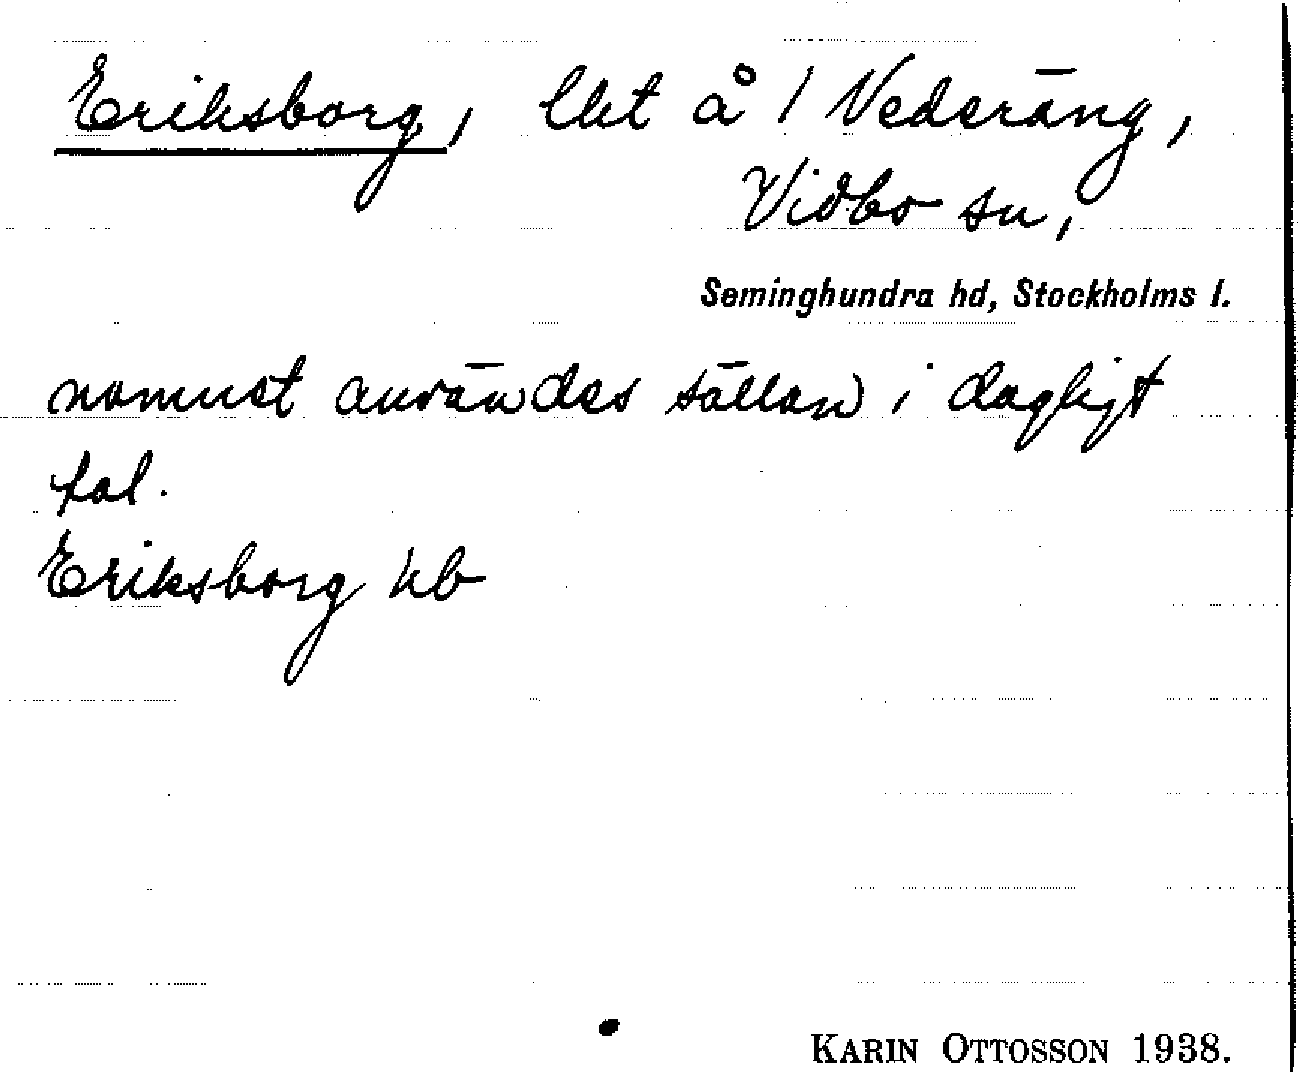 Eriksborg, lht å 1 Vederäng,
Vidbo sn,
Seminghundra hd, Stockholms l.
namnet användes sällan i dagligt
tal.
Eriksborg kb
KARIN OTTOSSON 1938.